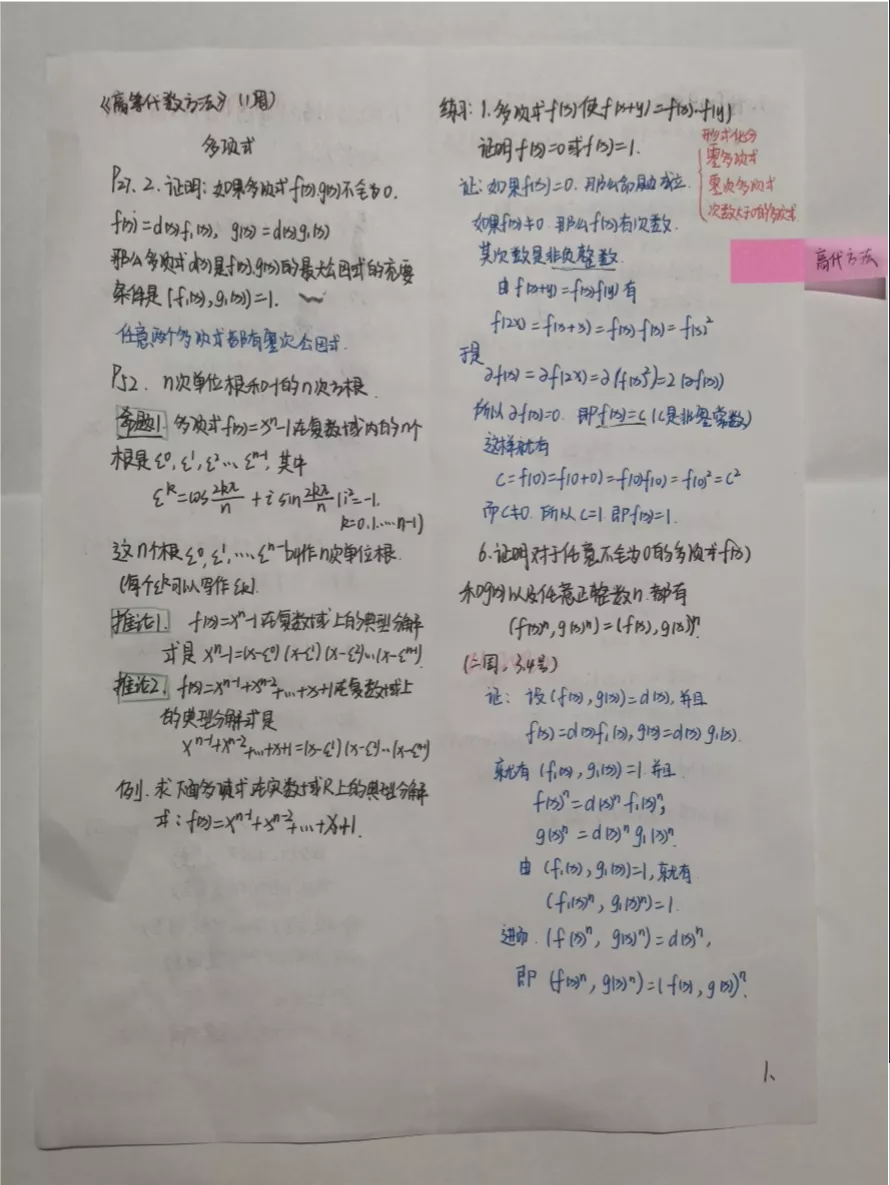 《高等代数方法》(11周)
多项式
P27. 2. 证明：如果多项式 f(x).g(x)不全为0.
f(x)=d(x)f₁(x), g(x)=d(x)g₁(x)
那么多项式d(x)是f(x).g(x)的最大公因式的充要
条件是 (f₁(x), g₁(x))=1.
任意两个多项式都有零次公因式.
P52. n次单位根和-1的n次方根.
命题1. 多项式f(x)=xⁿ-1在复数域内的n个
根是 ε⁰, ε¹, ε²…, εⁿ⁻¹, 其中
εᵏ=cos 2kπ/n + i sin 2kπ/n (i²=-1.
k=0.1.…n-1)
这n个根 ε⁰, ε¹, …, εⁿ⁻¹叫作n次单位根.
(每个εᵏ可以写作 εₖ).
推论1. f(x)=xⁿ-1在复数域上的典型分解
式是 xⁿ-1=(x-ε⁰)(x-ε¹)(x-ε²)…(x-εⁿ⁻¹)
推论2. f(x)=xⁿ⁻¹+xⁿ⁻²+…+x+1在复数域上
的典型分解式是
xⁿ⁻¹+xⁿ⁻²+…+x+1=(x-ε¹)(x-ε²)…(x-εⁿ⁻¹)
例. 求下面多项式在实数域R上的典型分解
式：f(x)=xⁿ⁻¹+xⁿ⁻²+…+x+1.
练习：1. 多项式f(x)使f(x+y)=f(x)·f(y)
证明f(x)=0或f(x)=1.
形式化分
零多项式
零次多项式
次数大于0的多项式.
证：如果f(x)=0. 那么命题成立.
如果f(x)≠0. 那么f(x)有次数.
其次数是非负整数.
高代方法
由f(x+y)=f(x)f(y)有
f(2x)=f(x+x)=f(x)·f(x)=f(x)²
于是
∂f(x)=∂f(2x)=∂(f(x)²)=2(∂f(x))
所以∂f(x)=0. 即f(x)=c (c是非零常数)
这样就有
c=f(0)=f(0+0)=f(0)f(0)=f(0)²=c²
而c≠0. 所以c=1. 即f(x)=1.
6. 证明对于任意不全为0的多项式f(x)
和g(x)以及任意正整数n. 都有
(f(x)ⁿ, g(x)ⁿ)=(f(x), g(x))ⁿ.
(二周, 3.4号)
证：设(f(x), g(x))=d(x), 并且
f(x)=d(x)f₁(x), g(x)=d(x)g₁(x).
就有(f₁(x), g₁(x))=1 并且
f(x)ⁿ=d(x)ⁿf₁(x)ⁿ,
g(x)ⁿ=d(x)ⁿg₁(x)ⁿ.
由(f₁(x), g₁(x))=1, 就有
(f₁(x)ⁿ, g₁(x)ⁿ)=1.
进而. (f(x)ⁿ, g(x)ⁿ)=d(x)ⁿ,
即 (f(x)ⁿ, g(x)ⁿ)=(f(x), g(x))ⁿ.
1、